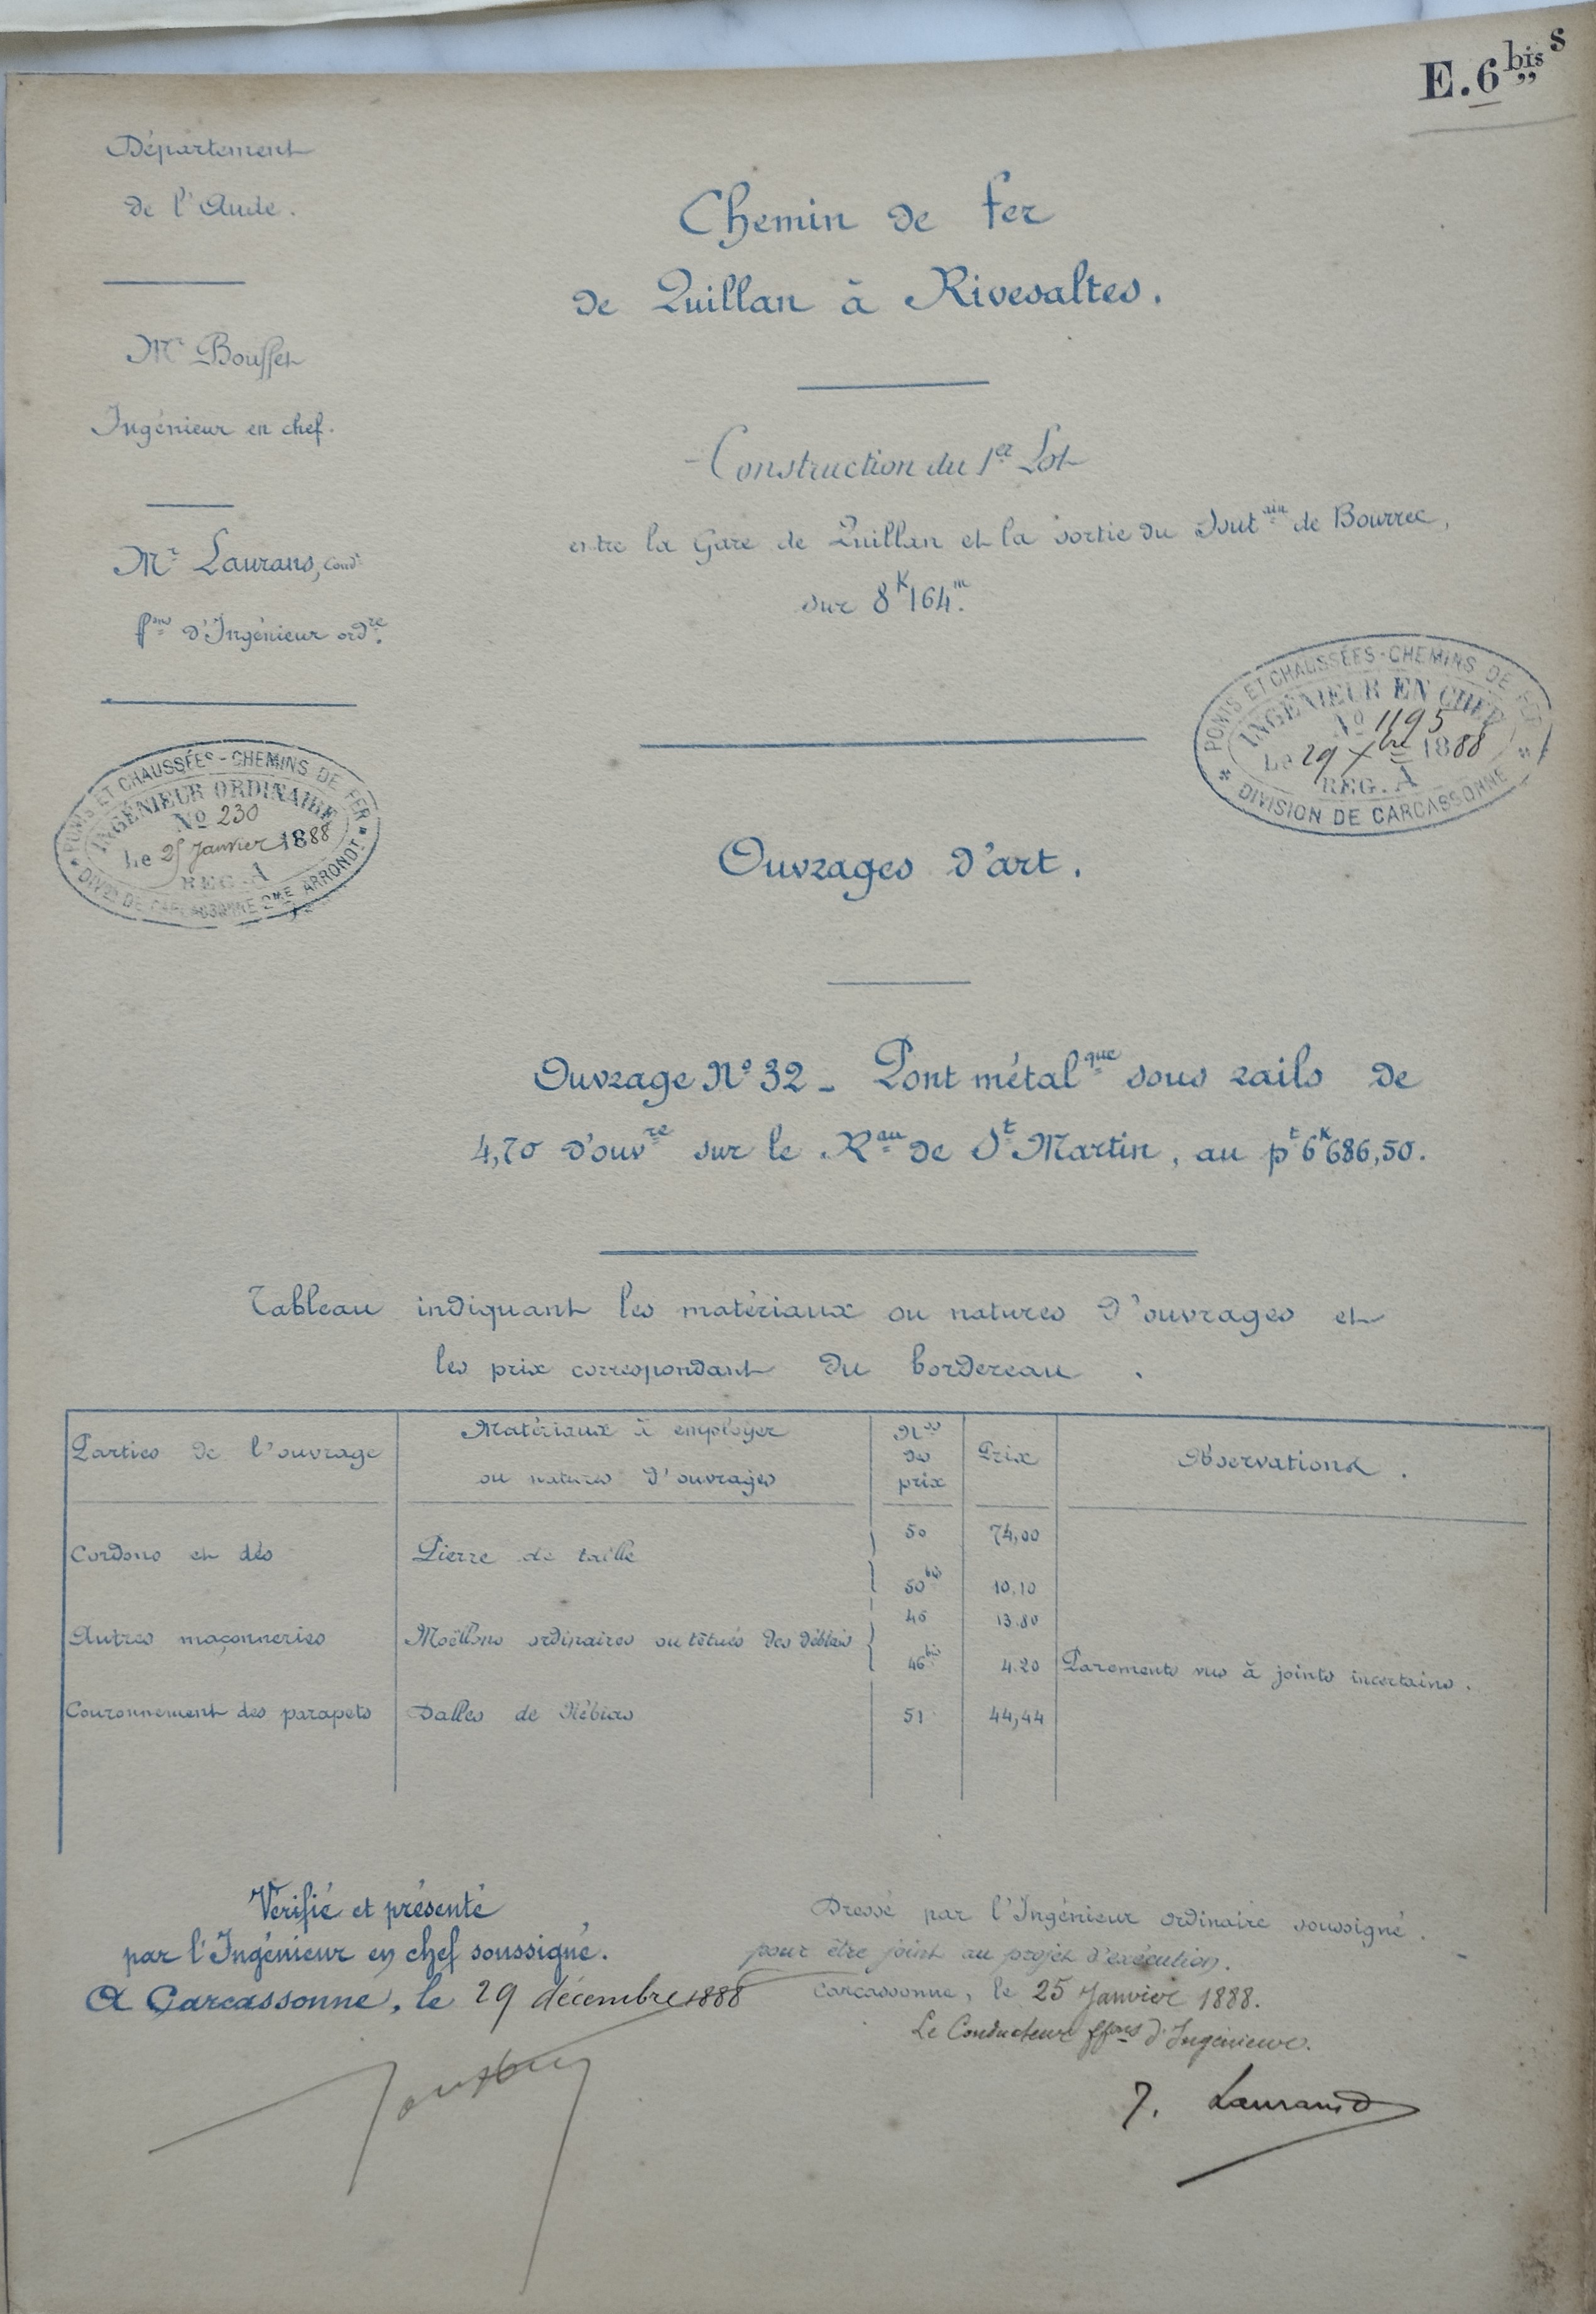 E. 6 bis s
Département
de l'Aude.
Mr Bouffet
Ingénieur en chef.
Mr Laurans, condr
ffons d'Ingénieur ordre.
PONTS ET CHAUSSÉES - CHEMINS DE FER
INGÉNIEUR ORDINAIRE
No 230
Le 25 Janvier 1888
REG. A
DIVon DE CARCASSONNE 2ME ARRONDT
Chemin de fer
de Quillan à Rivesaltes.
Construction du 1er Lot
entre la Gare de Quillan et la sortie du Soutain de Bourrec,
sur 8K164m.
PONTS ET CHAUSSÉES - CHEMINS DE FER
INGÉNIEUR EN CHEF
No 1195
Le 29 Xbre 1888
REG. A
DIVISION DE CARCASSONNE
Ouvrages d'art.
Ouvrage No 32 - Pont métalque sous rails de
4,70 d'ouvre sur le Rau de St Martin, au pt 6K686,50.
Tableau indiquant les matériaux ou natures d'ouvrages et
les prix correspondant du bordereau.
Parties de l'ouvrage
Matériaux à employer
ou natures d'ouvrages
Nos
des
prix
Prix
Observations.
Cordons et dés Pierre de taille 50 74,00
50bis 10,10
Autres maçonneries Moëllons ordinaires ou têtués des déblais 46 13.80
46bis 4.20 Parements vus à joints incertains.
Couronnement des parapets Dalles de Nébias 51 44,44
Vérifié et présenté
par l'Ingénieur en chef soussigné.
A Carcassonne, le 29 décembre 1888
Dressé par l'Ingénieur ordinaire soussigné.
pour être joint au projet d'exécution.
Carcassonne, le 25 Janvier 1888.
Le Conducteur ffons d'Ingénieur.
J. Laurans